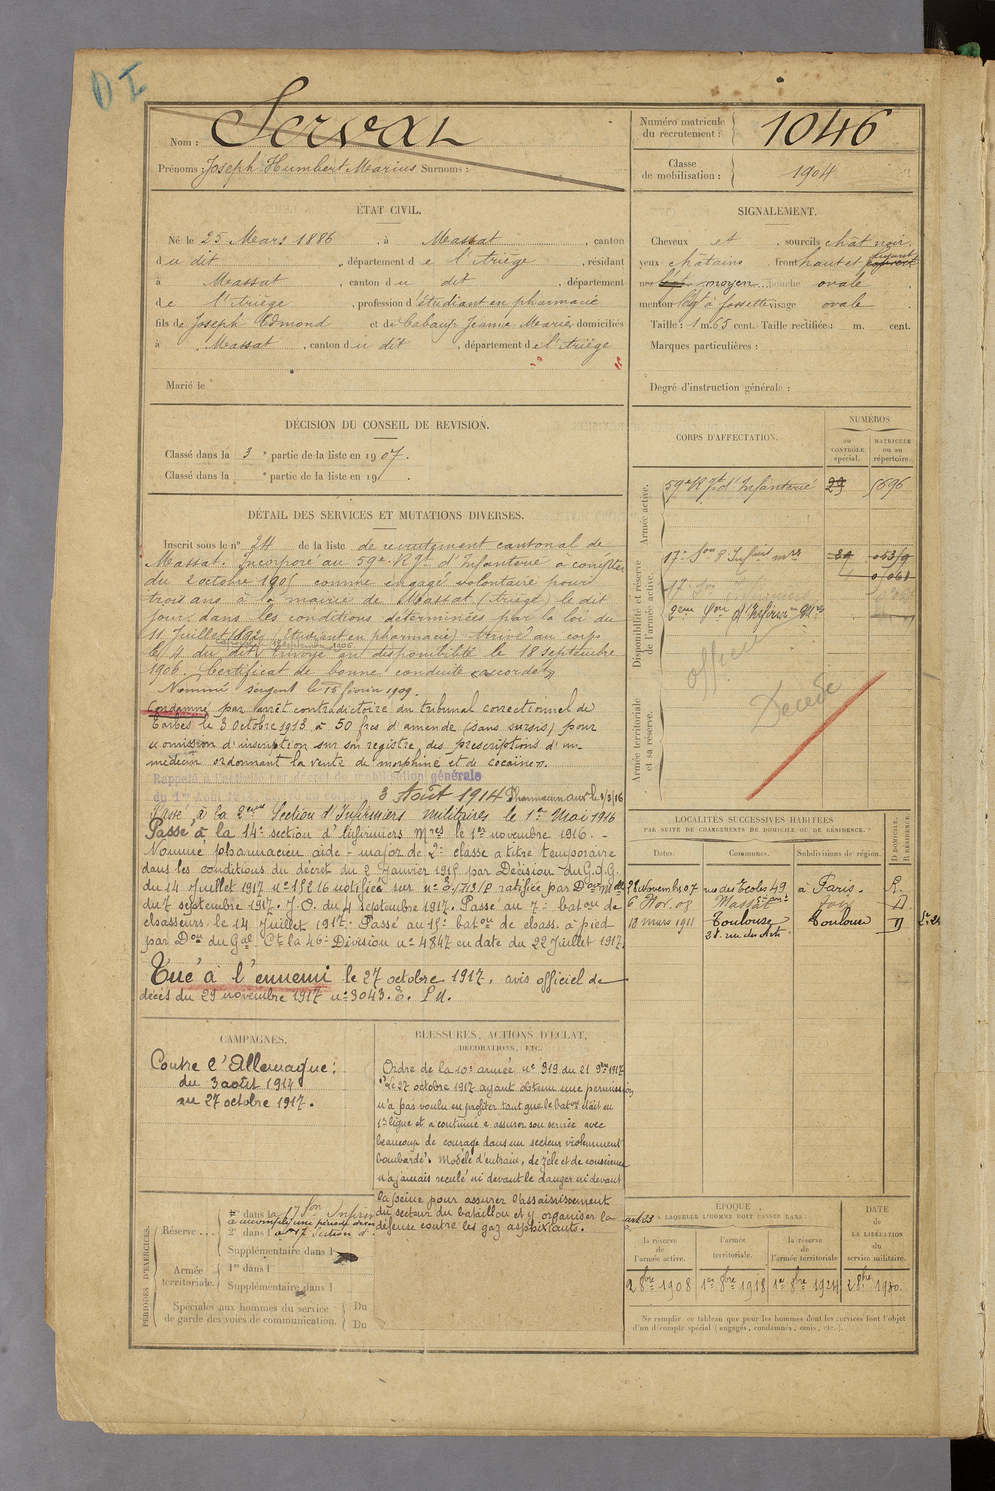 DI
Nom : Serval
Prénoms : Joseph Humbert Marius Surnoms :
Numéro matricule du recrutement : 1046
Classe de mobilisation : 1904
ÉTAT CIVIL.
Né le 25 Mars 1886, à Massat, canton
du dit, département de l'Ariège, résidant
à Massat, canton du dit, département
de l'Ariège, profession d'étudiant en pharmacie
fils de Joseph Edmond et de Cabaup Jeanne Marie, domiciliés
à Massat, canton du dit, département de l'Ariège
Marié le
SIGNALEMENT.
Cheveux et, sourcils chât noir.
yeux châtains front haut et fuyant
nez moyen bouche ovale
menton à fossette visage ovale
Taille : 1 m. 65 cent. Taille rectifiée : m. cent.
Marques particulières :
Degré d'instruction générale :
DÉCISION DU CONSEIL DE REVISION.
Classé dans la 3e partie de la liste en 1907.
Classé dans la e partie de la liste en 19
DÉTAIL DES SERVICES ET MUTATIONS DIVERSES.
Inscrit sous le no 24 de la liste de recrutement cantonal de
Massat. Incorporé au 59e Rgt d'Infanterie à compter
du 2 octobre 1905 comme engagé volontaire pour
trois ans à la mairie de Massat (Ariège) le dit
jour, dans les conditions déterminées par la loi du
11 Juillet 1892 (étudiant en pharmacie) Arrivé au corps
le 4 du dit. Envoyé en disponibilité le 18 septembre
1906. Certificat de bonne conduite accordé.
Nommé sergent le 15 février 1909.
Condamné par arrêt contradictoire du tribunal correctionnel de
Tarbes le 3 octobre 1913 à 50 frcs d'amende (sans sursis) pour
omission d'inscription sur son registre, des prescriptions d'un
médecin ordonnant la vente de morphine et de cocaïne.
Rappelé à l'activité par décret de mobilisation générale
du 1er Août 3 Août 1914
Passé à la 2eme Section d'Infirmiers militaires le 1er Mai 1916
Passé à la 14e section d'Infirmiers Mres le 1er novembre 1916.
Nommé pharmacien aide-major de 2e classe à titre temporaire
dans les conditions du décret du 2 Janvier 1915 par Décision du G.Q.G.
du 14 Juillet 1917 no 15216 notifiée sur no ratifiée par Don Mlle
du 7 septembre 1917. J.O. du 4 septembre 1917. Passé au 7e baton de
chasseurs le 14 Juillet 1917. Passé au 15e baton de chass. à pied
par Don du Gal Ct la 46e Division no 4847 en date du 22 Juillet 1917.
Tué à l'ennemi le 27 octobre 1917, avis officiel de
décès du 29 novembre 1917 no 3043.
CORPS D'AFFECTATION.
NUMÉROS
AU CONTRÔLE spécial.
MATRICULE ou au répertoire.
Armée active.
59e Rgt d'Infanterie 29 5696
Disponibilité et réserve de l'armée active.
17e Son d'Infiers mres
2eme Son d'Infirmiers Mres
officier
Décédé
Armée territoriale et sa réserve.
LOCALITÉS SUCCESSIVES HABITÉES
PAR SUITE DE CHANGEMENTS DE DOMICILE OU DE RÉSIDENCE.
Dates. Communes. Subdivisions de région. D DOMICILE. R RÉSIDENCE.
28 Novemb 07 rue des Ecoles 49 à Paris. R.
6 Nov. 08 Massat Foix D
18 mars 1911 Toulouse Toulouse D
38. rue des Arts
CAMPAGNES.
Contre l'Allemagne :
du 3 août 1914
au 27 octobre 1917.
BLESSURES, ACTIONS D'ÉCLAT,
DÉCORATIONS, ETC.
Ordre de la 10e armée no 319 du 21 9bre 1917
le 27 octobre 1917 ayant obtenu une permission
n'a pas voulu en profiter tant que le baton était en
1e ligne et a continué à assurer son service avec
beaucoup de courage dans un secteur violemment
bombardé. Modèle d'entrain, de zèle et de conscience
n'a jamais reculé ni devant le danger ni devant
la peine pour assurer l'assainissement
du secteur du bataillon et y organiser la
défense contre les gaz asphyxiants.
PÉRIODES D'EXERCICES.
Réserve ... 1re dans la 17 Son Infirm
a accompli une période d'exer
2e dans la 17 Section d'
Supplémentaire dans l
Armée territoriale. 1re dans l
Supplémentaire dans l
Spéciales aux hommes du service
de garde des voies de communication. Du
Du
ÉPOQUE
À LAQUELLE L'HOMME DOIT PASSER DANS :
la réserve de l'armée active.
l'armée territoriale.
la réserve de l'armée territoriale
DATE de LA LIBÉRATION du service militaire.
2 8bre 1908 1er 8bre 1918 1er 8bre 1924 2 8bre 1930
Ne remplir ce tableau que pour les hommes dont les services font l'objet
d'un décompte spécial (engagés, condamnés, omis, etc.).